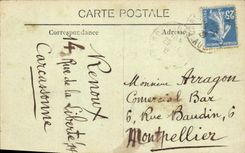 CARTE POSTALE
Correspondance
Adresse
Renoux
14 Rue de la Liberté
Carcassonne
Monsieur Arragon
Comercial Bar
6, Rue Baudin, 6
Montpellier
25